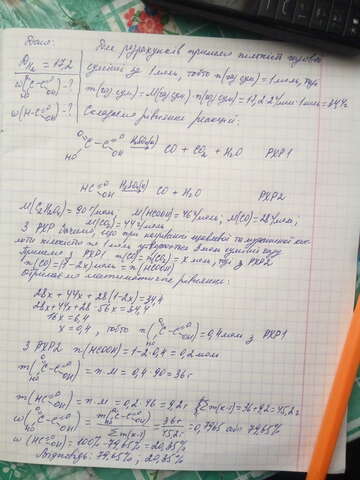 Дано: Для розрахунків приймемо кількість газової
D H₂ = 17,2 суміші за 1 моль, тобто n(газ.сум.) = 1 моль, тоді
ω(HO-C(=O)-C(=O)-OH) - ? m(газ.сум.) = M(газ.сум.) · n(газ.сум.) = 17,2·2 г/моль·1 моль = 34,4 г.
ω(H-C(=O)-OH) - ? Складаємо рівняння реакцій:
HO-C(=O)-C(=O)-OH —H₂SO₄(к)→ CO + CO₂ + H₂O РХР1
HC(=O)-OH —H₂SO₄(к)→ CO + H₂O РХР2
M(C₂H₂O₄) = 90 г/моль; M(HCOOH) = 46 г/моль; M(CO) = 28 г/моль;
M(CO₂) = 44 г/моль
З РХР бачимо, що при щавлевої та мурашиної кис-
лоти кількістю по 1 моль утворюється суміші газів
Приймемо з РХР1 n(CO) = n(CO₂) = x моль, тоді з РХР2
n(CO) = (1-2x) моль = n(HCOOH)
Отримаємо математичне рівняння:
28x + 44x + 28(1-2x) = 34,4
28x + 44x + 28 - 56x = 34,4
16x = 6,4
x = 0,4, тобто n(HO-C(=O)-C(=O)-OH) = 0,4 моль з РХР1
З РХР2 n(HCOOH) = 1-2·0,4 = 0,2 моль
m(HO-C(=O)-C(=O)-OH) = n·M = 0,4·90 = 36 г
m(HC(=O)-OH) = n·M = 0,2·46 = 9,2 г Σm(к-т) = 36+9,2 = 45,2 г
ω(HO-C(=O)-C(=O)-OH) = m(HO-C(=O)-C(=O)-OH) / Σm(к-т) = 36 г / 45,2 г = 0,7965 або 79,65%
ω(HC(=O)-OH) = 100% - 79,65% = 20,35%
Відповідь: 79,65%, 20,35%